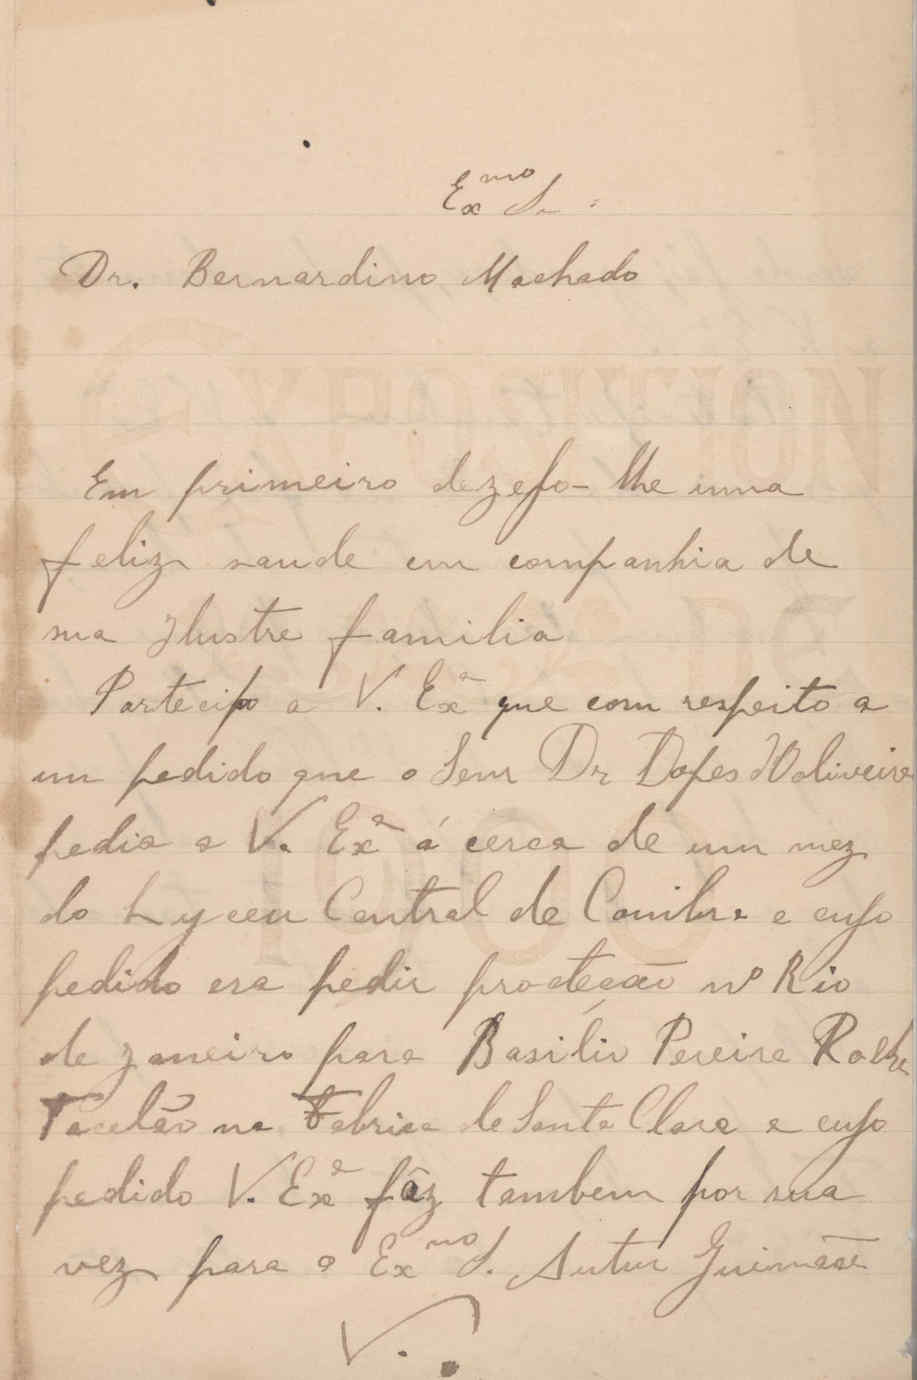 Exmo S.
Dr. Bernardino Machado
Em primeiro dezejo-lhe uma
feliz saude em companhia de
sua Ilustre familia
Partecipo a V. Exª que com respeito a
um pedido que o Senr Dr Lopes d'Oliveira
pedia a V. Exª á cerca de um mez
do Lyceu Central de Coimbra e cujo
pedido era pedir protecção no Rio
de Zaneiro para Basilio Pereira Rocha
Tecelão na Fabrica de Santa Clara e cujo
pedido V. Exª fáz tambem por sua
vez para o Exmo S. Artur Guimarães
V.